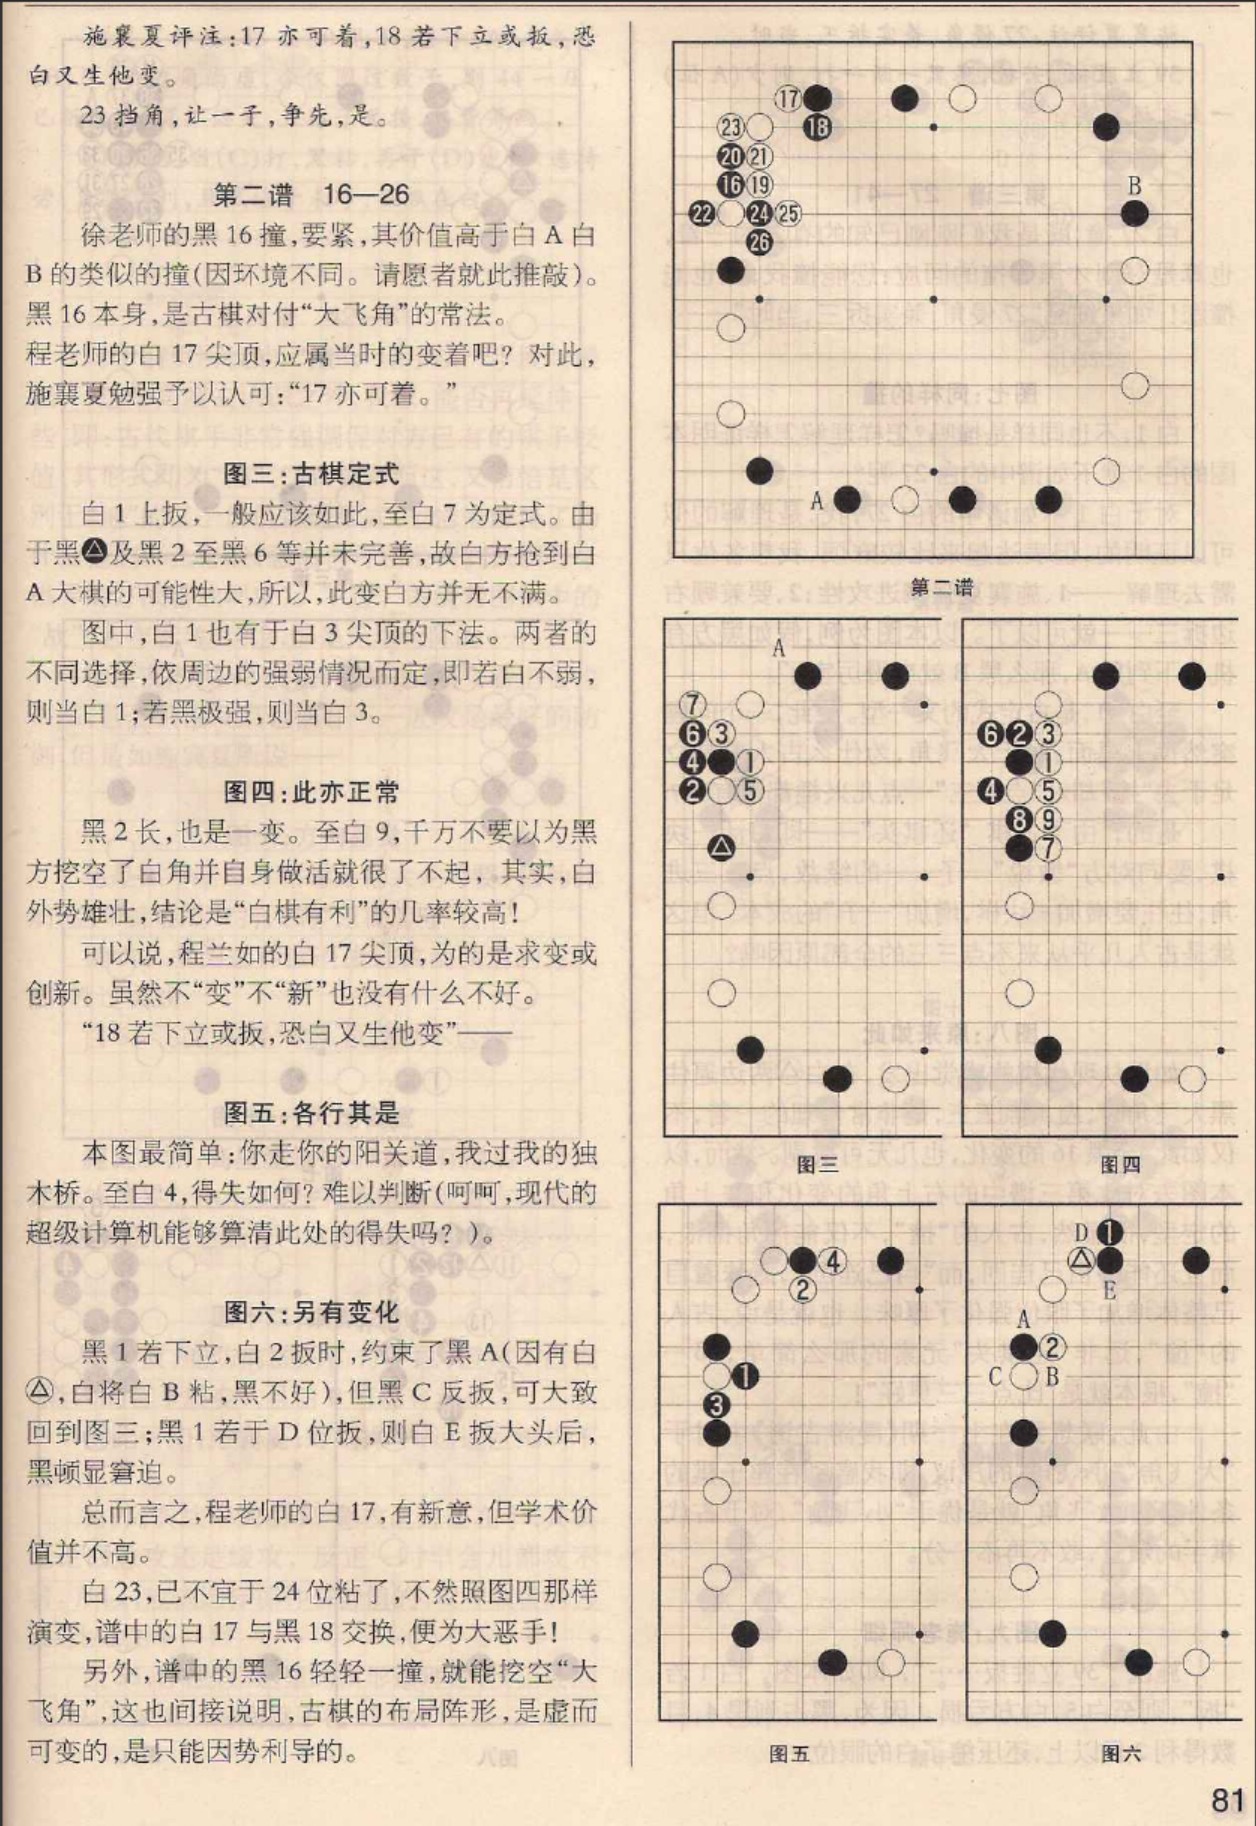 施襄夏评注:17 亦可着,18 若下立或扳,恐
白又生他变。
23 挡角,让一子,争先,是。
第二谱 16—26
徐老师的黑 16 撞,要紧,其价值高于白 A 白
B 的类似的撞(因环境不同。请愿者就此推敲)。
黑 16 本身,是古棋对付“大飞角”的常法。
程老师的白 17 尖顶,应属当时的变着吧? 对此,
施襄夏勉强予以认可:“17 亦可着。”
图三:古棋定式
白 1 上扳,一般应该如此,至白 7 为定式。由
于黑▲及黑 2 至黑 6 等并未完善,故白方抢到白
A 大棋的可能性大,所以,此变白方并无不满。
图中,白 1 也有于白 3 尖顶的下法。两者的
不同选择,依周边的强弱情况而定,即若白不弱,
则当白 1;若黑极强,则当白 3。
图四:此亦正常
黑 2 长,也是一变。至白 9,千万不要以为黑
方挖空了白角并自身做活就很了不起，其实,白
外势雄壮,结论是“白棋有利”的几率较高!
可以说,程兰如的白 17 尖顶,为的是求变或
创新。虽然不“变”不“新”也没有什么不好。
“18 若下立或扳,恐白又生他变”——
图五:各行其是
本图最简单:你走你的阳关道,我过我的独
木桥。至白 4,得失如何? 难以判断(呵呵,现代的
超级计算机能够算清此处的得失吗? )。
图六:另有变化
黑 1 若下立,白 2 扳时,约束了黑 A(因有白
△,白将白 B 粘,黑不好),但黑 C 反扳,可大致
回到图三;黑 1 若于 D 位扳,则白 E 扳大头后,
黑顿显窘迫。
总而言之,程老师的白 17,有新意,但学术价
值并不高。
白 23,已不宜于 24 位粘了,不然照图四那样
演变,谱中的白 17 与黑 18 交换,便为大恶手!
另外,谱中的黑 16 轻轻一撞,就能挖空“大
飞角”,这也间接说明,古棋的布局阵形,是虚而
可变的,是只能因势利导的。
17
23 18
20 21
16 19 B
22 24 25
26
A
第二谱
A
7
6 3
4 1
2 5
△
图三
6 2 3
1
4 5
8 9
7
图四
4
2
1
3
图五
D 1
△
E
A
2
C B
图六
81